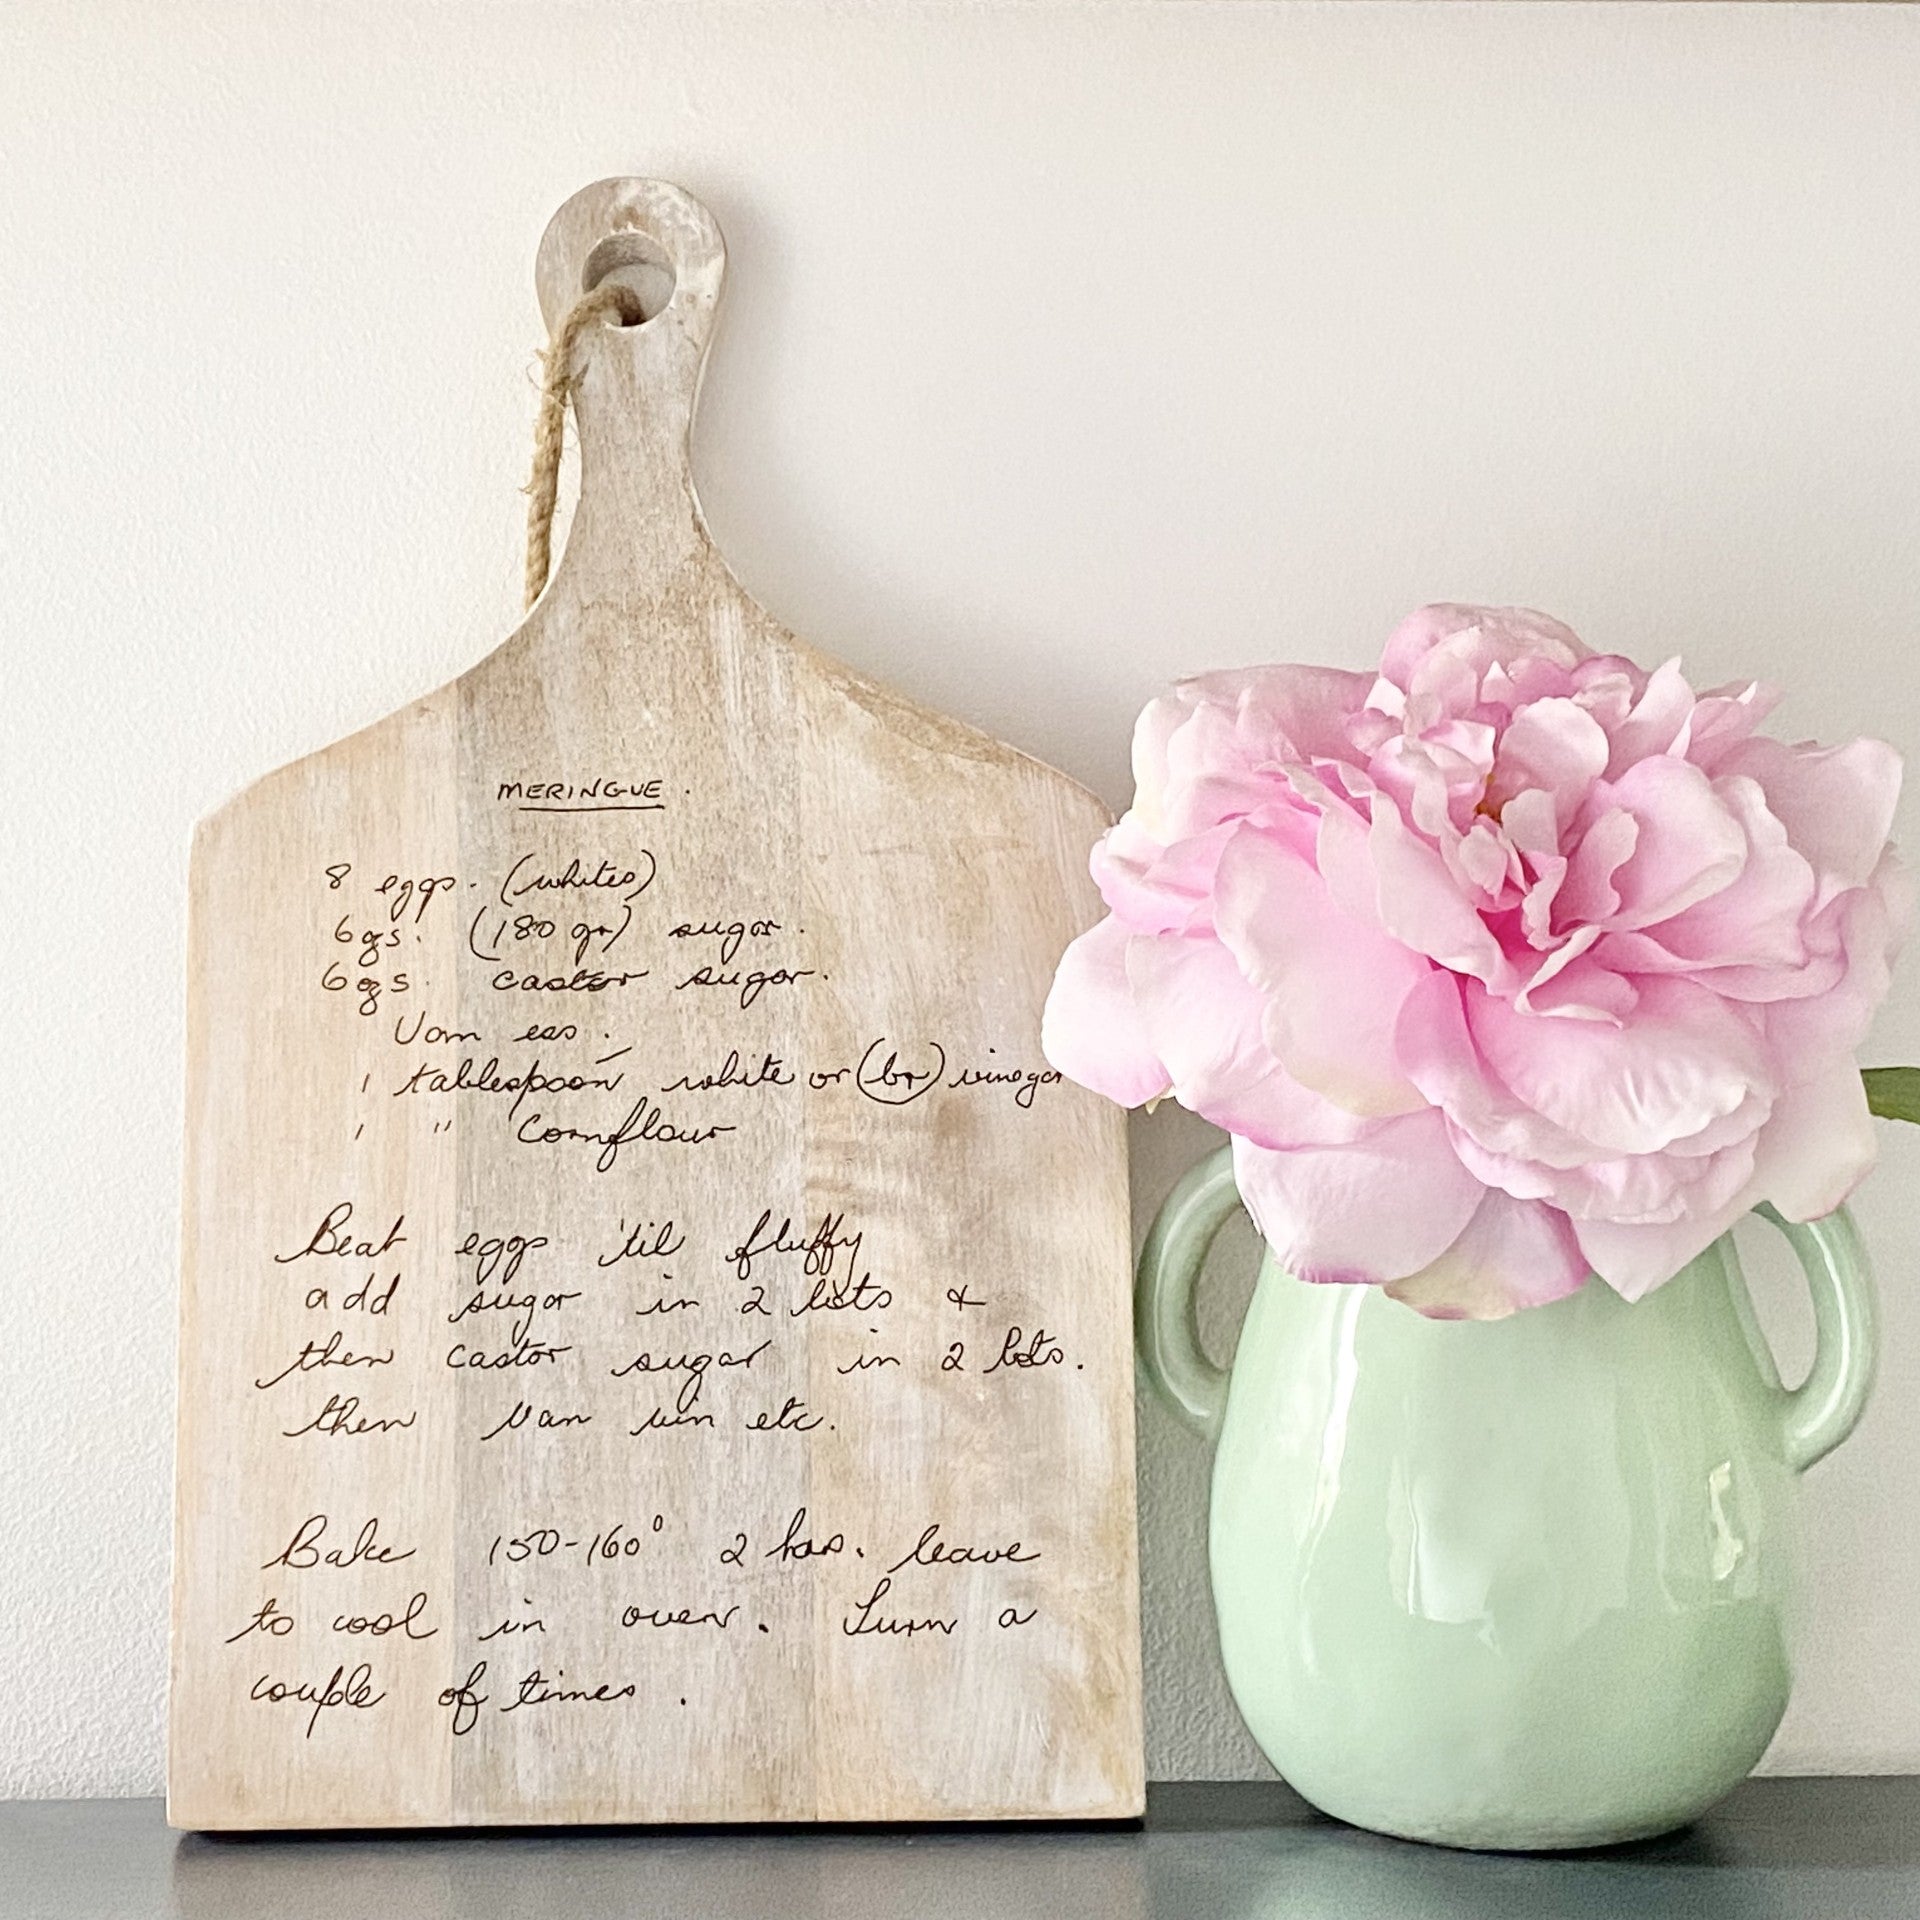 MERINGUE.
8 eggs. (whites)
6ozs. (180 gr) sugar.
6ozs. caster sugar.
Van ess.
1 tablespoon white or (br) vinegar
1 " Cornflour
Beat eggs 'til fluffy
add sugar in 2 lots &
then castor sugar in 2 lots.
then Van vin etc.
Bake 150-160° 2 hrs. leave
to cool in oven. Turn a
couple of times.